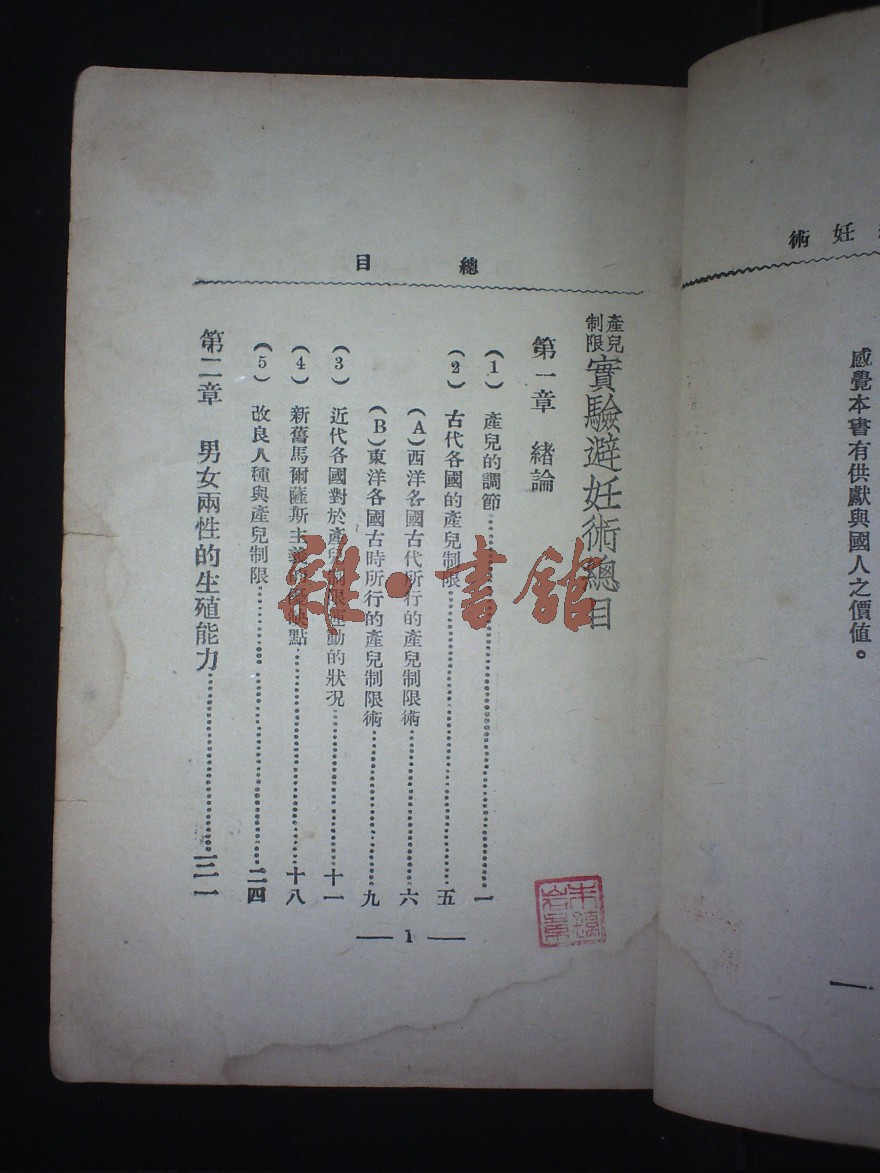 術 妊
感覺本書有供獻與國人之價值。
目 總
產兒
制限
實驗避妊術總目
第一章 緒論
(1) 產兒的調節……一
(2) 古代各國的產兒制限……五
(A)西洋各國古代所行的產兒制限術……六
(B)東洋各國古時所行的產兒制限術……九
(3) 近代各國對於產兒制限運動的狀況……十一
(4) 新舊馬爾薩斯主義的優缺點……十八
(5) 改良人種與產兒制限……二四
第二章 男女兩性的生殖能力……三一
— 1 —
雜·書館